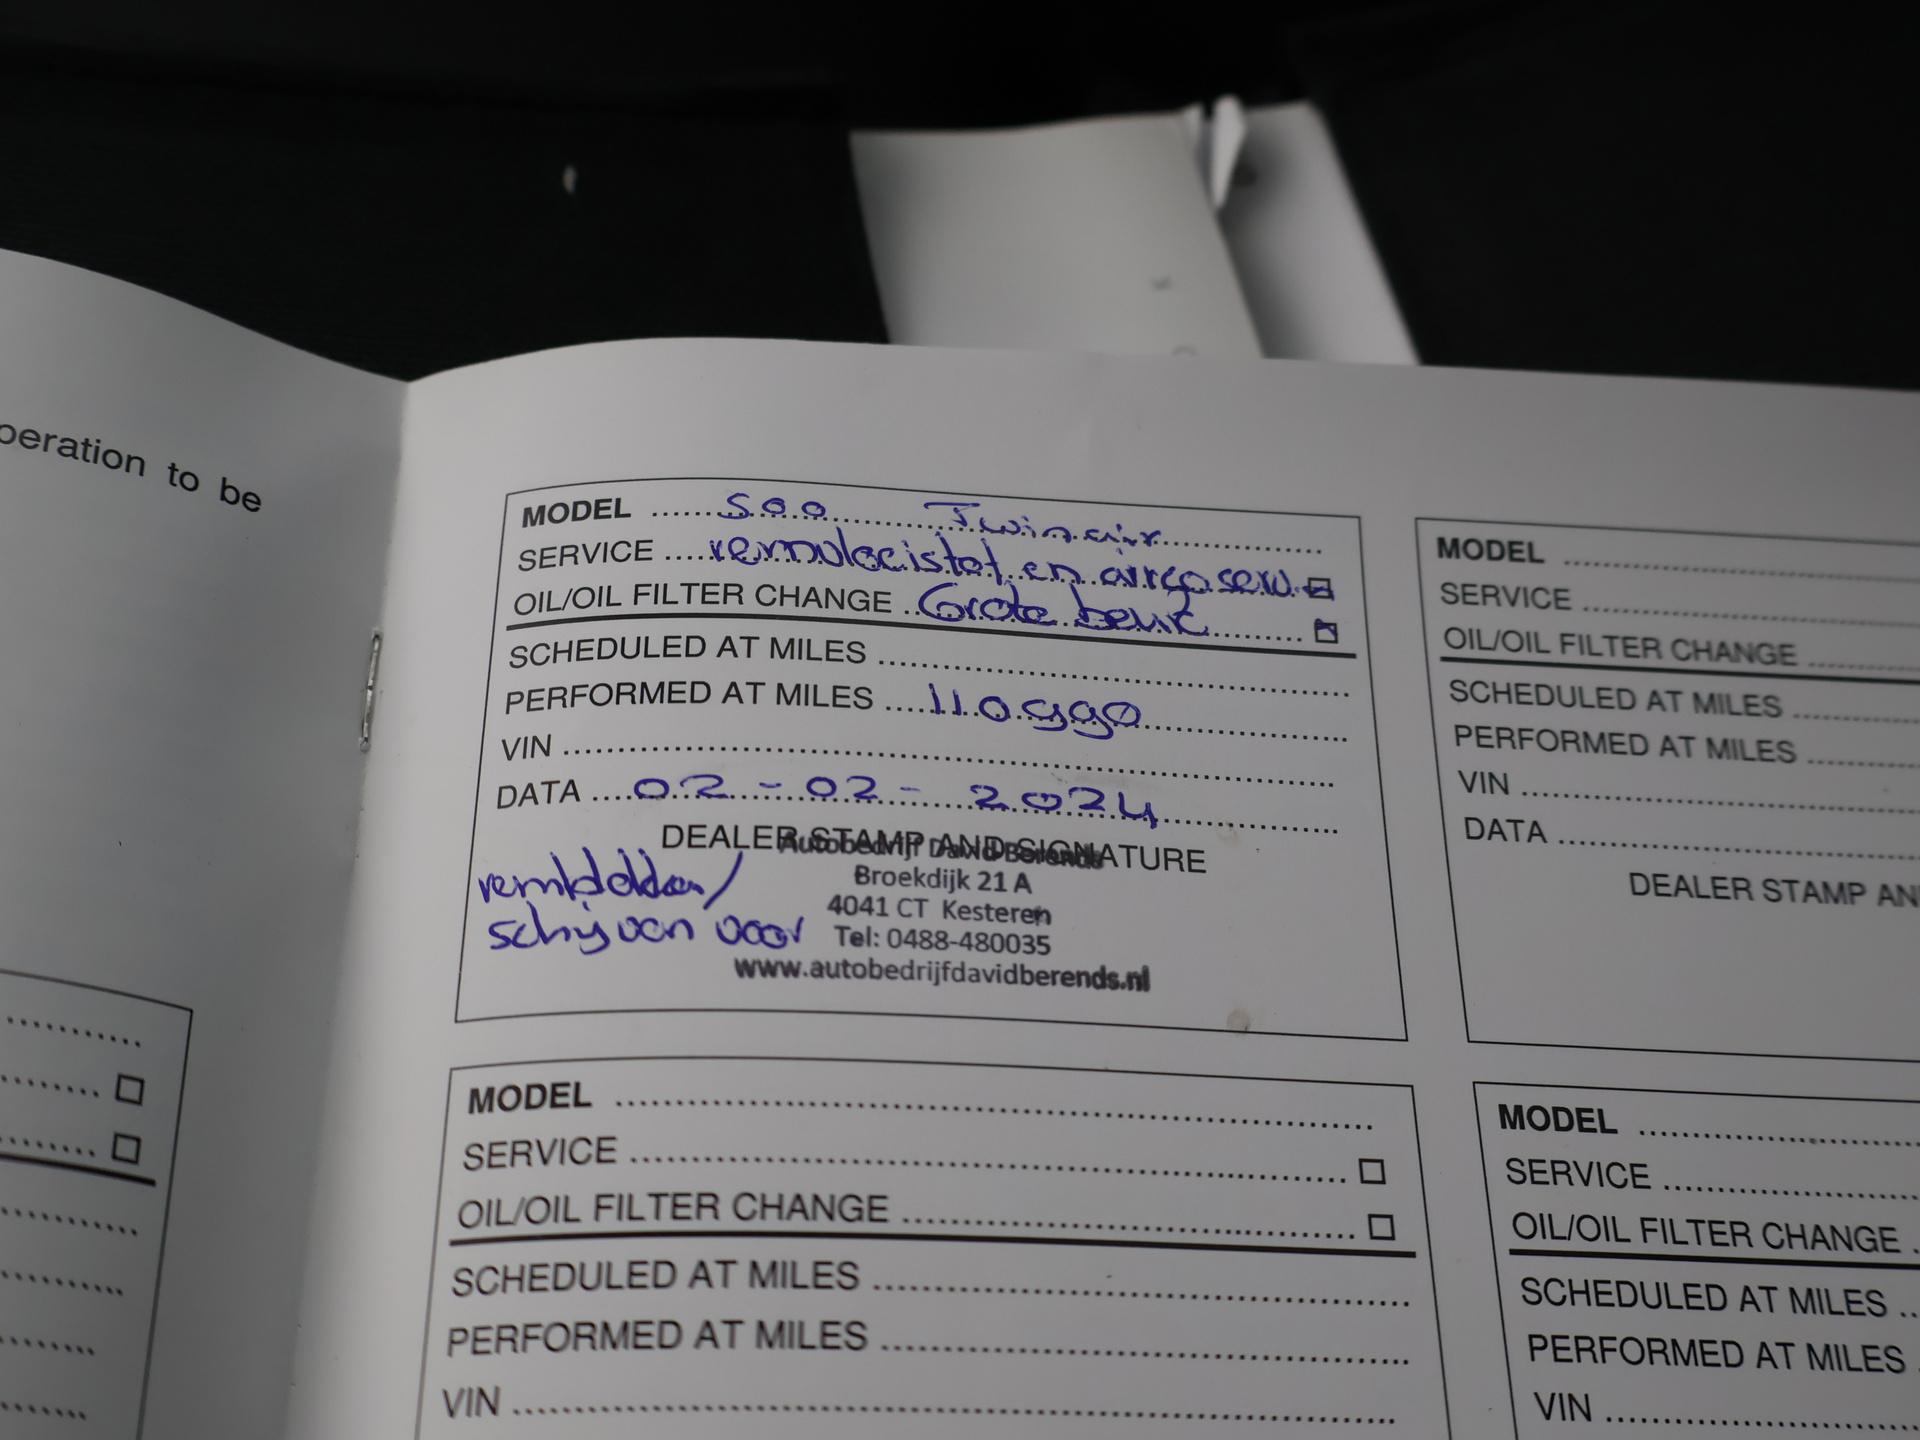 peration to be
MODEL ........ 500 Twinair ........
SERVICE .... remvloeistof en airco serv. ☑
OIL/OIL FILTER CHANGE .. Grote beurt ........ ☑
SCHEDULED AT MILES ........
PERFORMED AT MILES .... 110990 ........
VIN ........
DATA .... 02 - 02 - 2024 ........
DEALER STAMP AND SIGNATURE
Autobedrijf David Berends
Broekdijk 21 A
4041 CT Kesteren
Tel: 0488-480035
www.autobedrijfdavidberends.nl
remblokken/
schijven voor
MODEL ........
SERVICE ........
OIL/OIL FILTER CHANGE ........
SCHEDULED AT MILES ........
PERFORMED AT MILES ........
VIN ........
DATA ........
DEALER STAMP AN
MODEL ........
SERVICE ........ ☐
OIL/OIL FILTER CHANGE ........ ☐
SCHEDULED AT MILES ........
PERFORMED AT MILES ........
VIN ........
MODEL ........
SERVICE ........
OIL/OIL FILTER CHANGE .
SCHEDULED AT MILES ..
PERFORMED AT MILES .
VIN ........